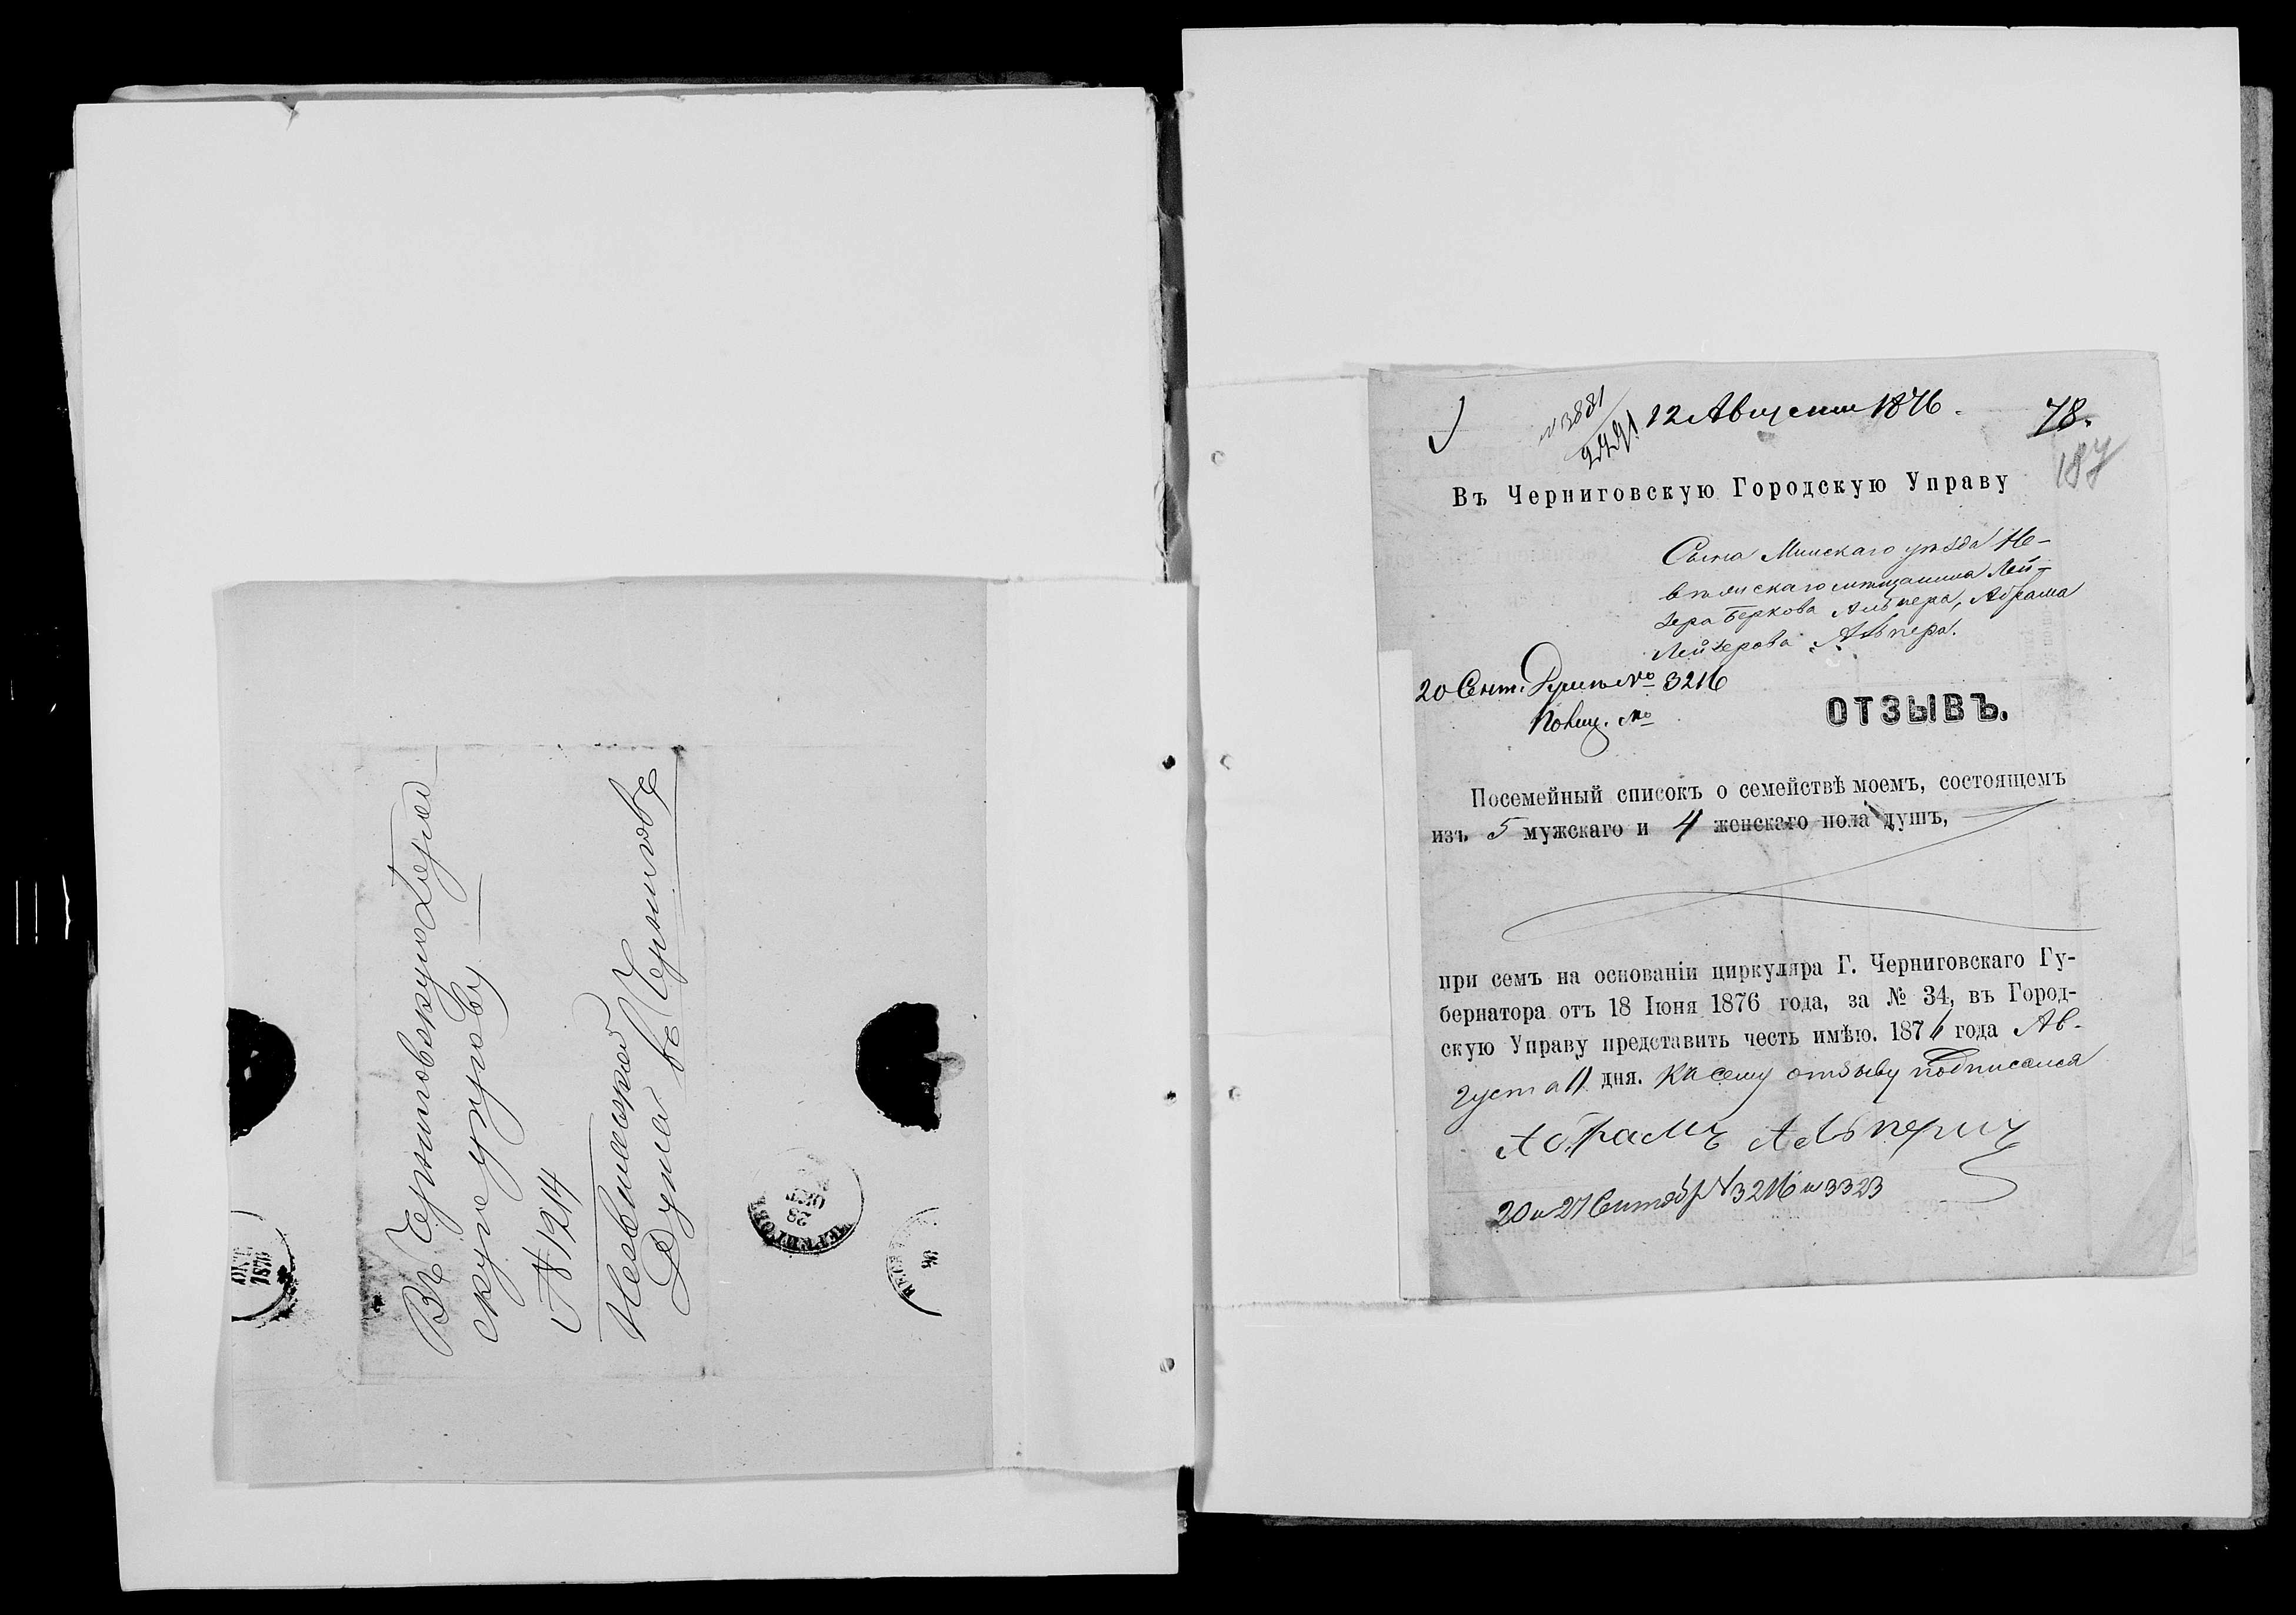 Въ Черниговскую Город
скую управу
№ 1214
Невклянская
Дума въ Черниговѣ
ОКТ.
1876
28
ОКТ
ЧЕРНИГОВЪ
№ 3881
12 Августа 1876.
78.
187
Въ Черниговскую Городскую Управу
Сына Минскаго уѣзда Не-
мѣщанина Лей-
зера Беркова Альпера, Абрама
Лейзерова Альпера.
20 Сент. Думѣ № 3216
Полиц. №
ОТЗЫВЪ.
Посемейный списокъ о семействѣ моемъ, состоящемъ
изъ 5 мужскаго и 4 женскаго пола душъ,
при семъ на основаніи циркуляра Г. Черниговскаго Гу-
бернатора отъ 18 Іюня 1876 года, за № 34, въ Город-
скую Управу представить честь имѣю. 1876 года Ав-
густа 11 дня. Къ сему отзыву подписался
Абрамъ Альперинъ
20 и 27 Сентябр № 3216 и 3323